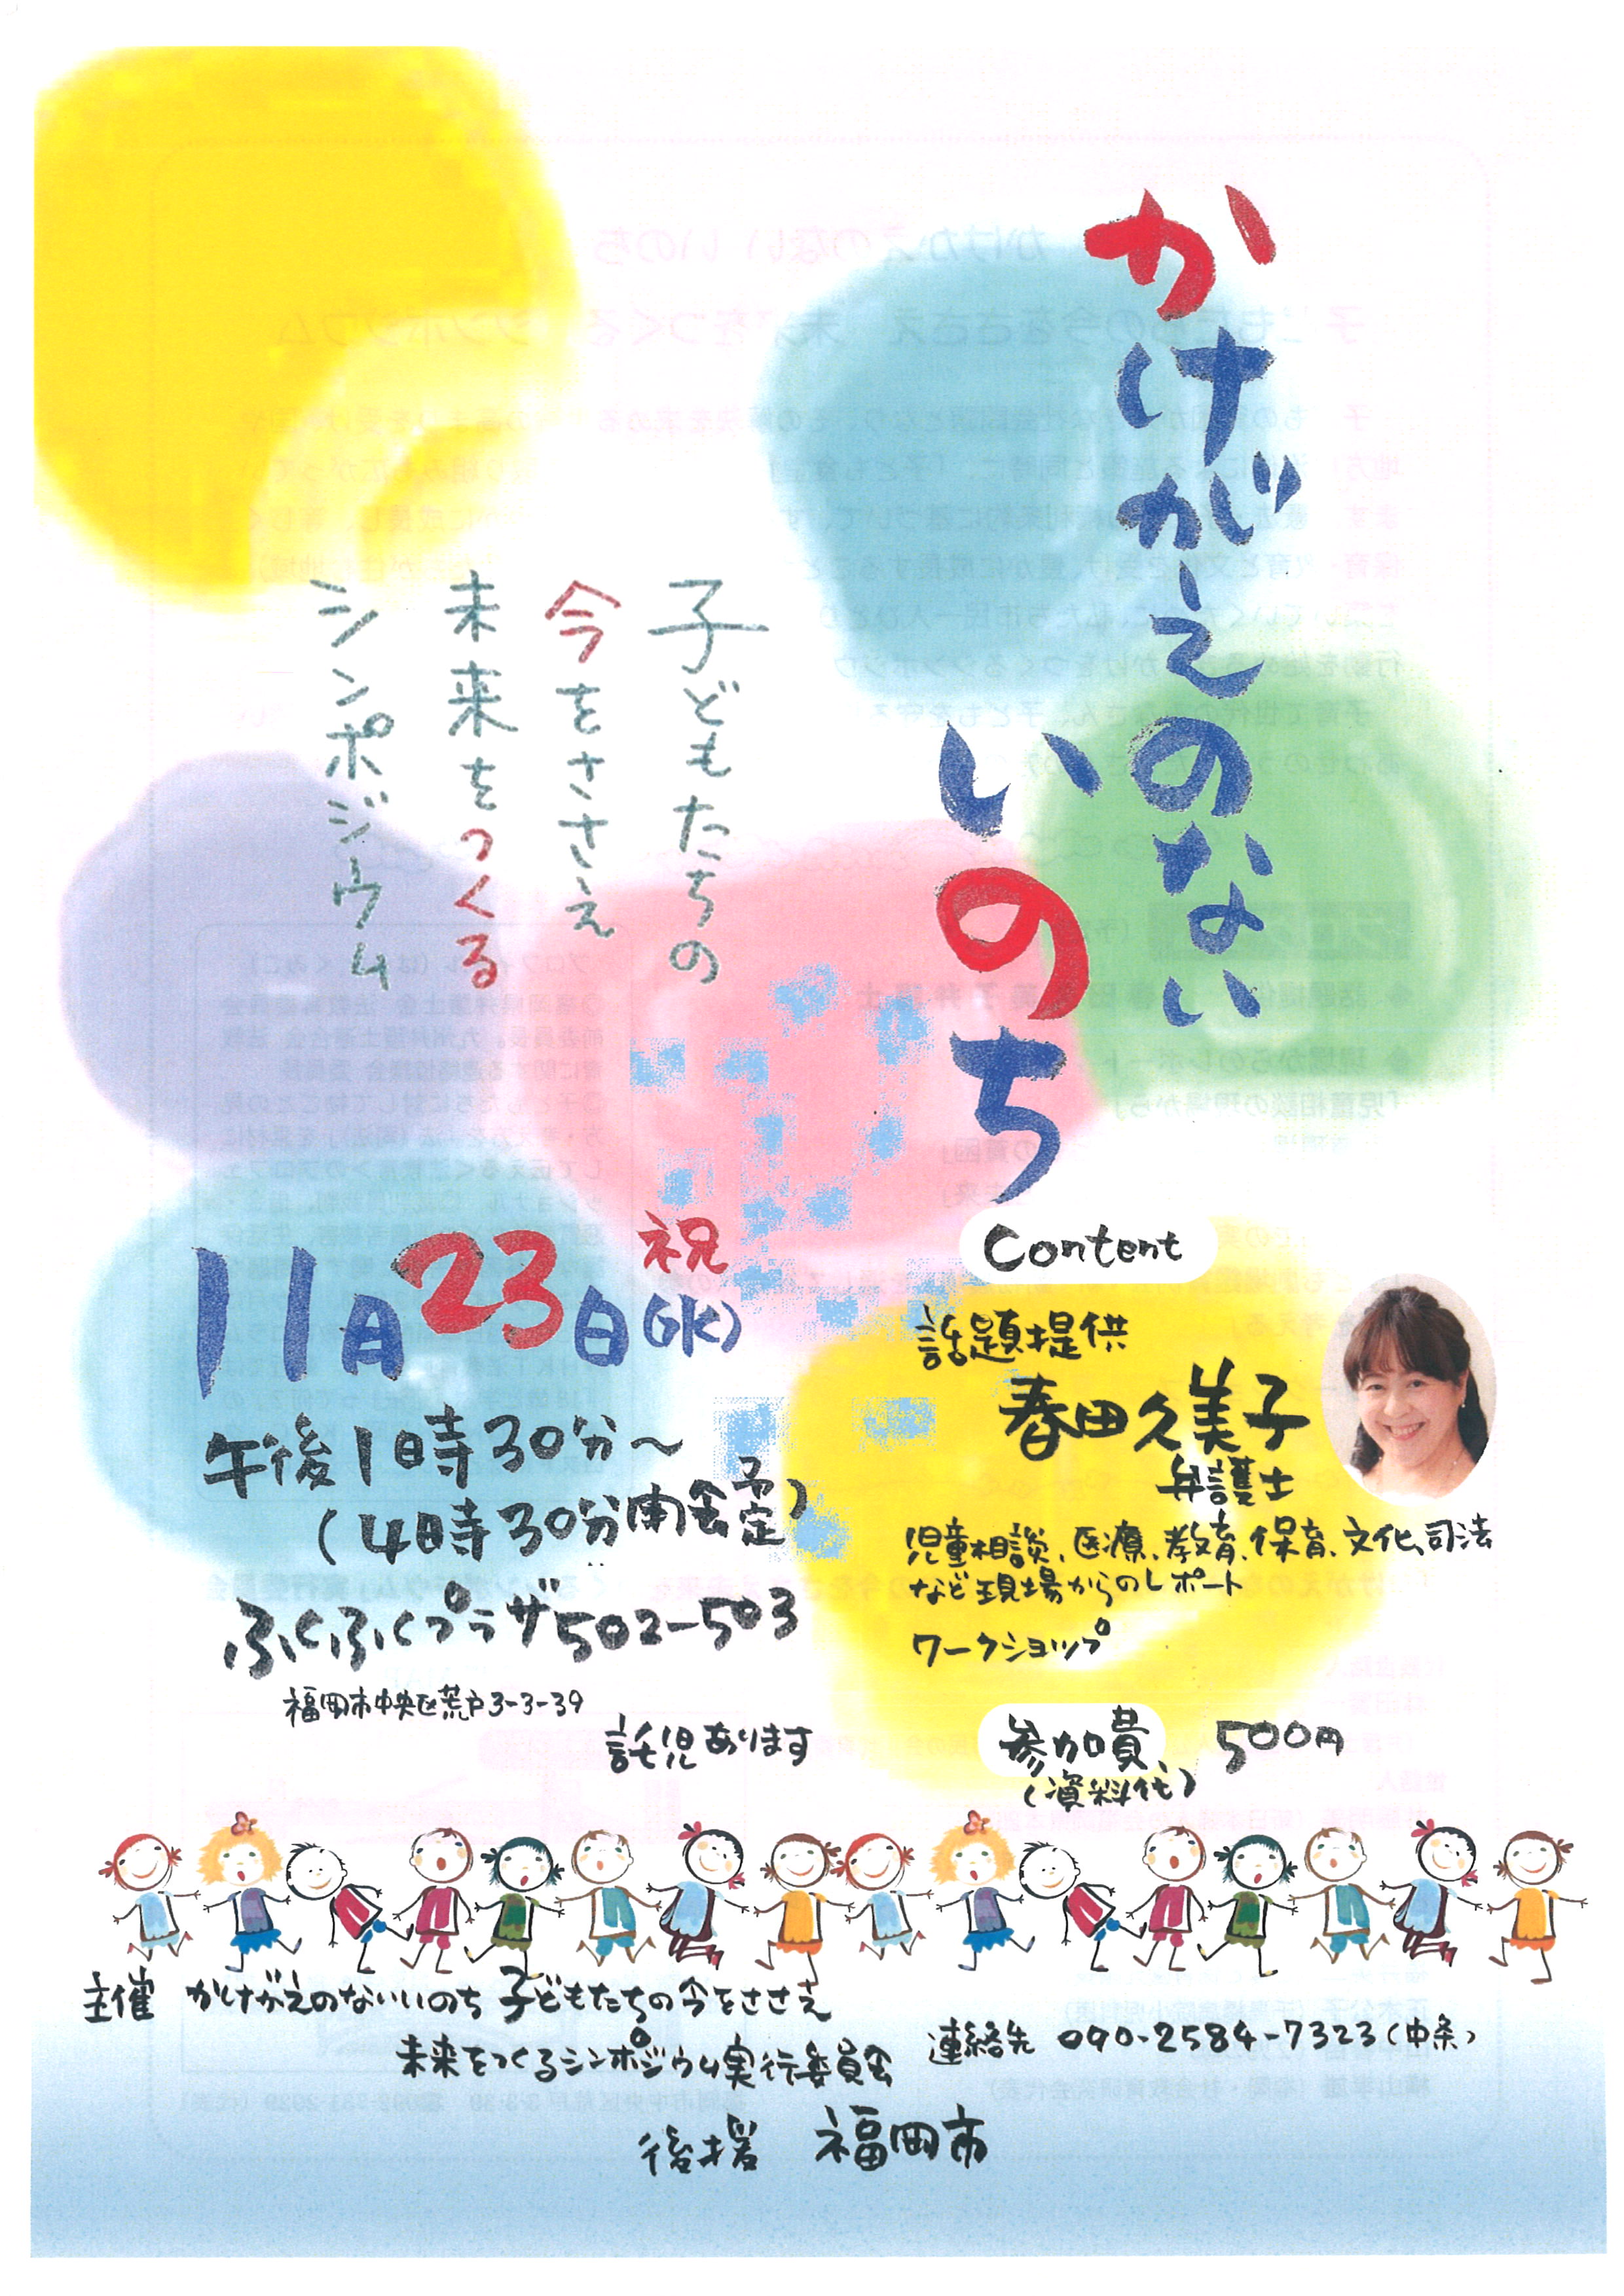 かけがえのない
いのち
子どもたちの
今をささえ
未来をつくる
シンポジウム
11月23日(水)
祝
午後1時30分〜
(4時30分閉会予定)
ふくふくプラザ502-503
福岡市中央区荒戸3-3-39
託児あります
Content
話題提供
春田久美子
弁護士
児童相談、医療、教育、保育、文化、司法
など現場からのレポート
ワークショップ
参加費 500円
(資料代)
主催 かけがえのないいのち 子どもたちの今をささえ
未来をつくるシンポジウム実行委員会
連絡先 090-2584-7323(中条)
後援 福岡市